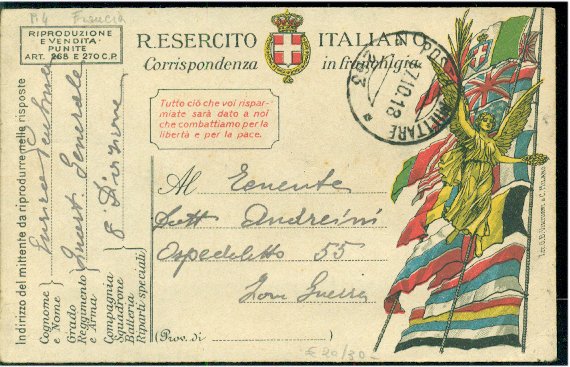 RIPRODUZIONE
E VENDITA
PUNITE
ART. 268 E 270 C.P.
R. ESERCITO ITALIANO
Corrispondenza in franchigia
POSTA MILITARE
17.10.18
Tutto ciò che voi rispar-
miate sarà dato a noi
che combattiamo per la
libertà e per la pace.
Al Tenente
Dott Andreini
Ospedaletto 55
Zona Guerra
(Prov. di )
Indirizzo del mittente da riprodurre nelle risposte
Cognome
e Nome
Enrico
Grado
Reggimento
e Arma
Generale
Compagnia
Squadrone
Batteria
Riparti speciali
8ª Divisione
€ 20/30-